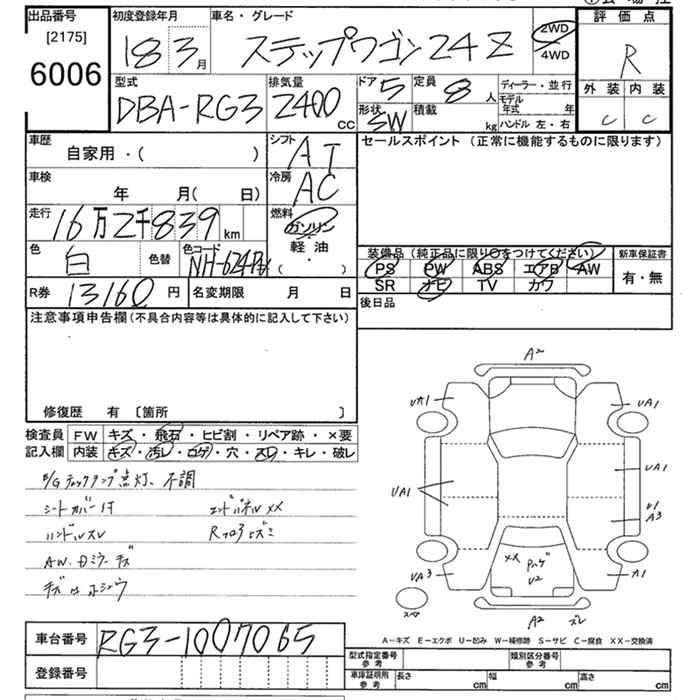 出品番号
[2175]
6006
初度登録年月
18 3月
車名・グレード
ステップワゴン24Z
2WD
4WD
評価点
R
外装 内装
C C
型式
DBA-RG3
排気量
2400 cc
ドア 5
形状 SW
定員 8 人
積載 kg
ディーラー・並行
モデル年式 年
ハンドル 左・右
車歴
自家用・( )
シフト AT
セールスポイント (正常に機能するものに限ります)
車検 年 月( 日)
冷房 AC
走行 16万2千839 km
燃料
ガソリン
軽油
( ・ )
色 白
色替
色コード NH-624P
装備品 (純正品に限り○をつけてください)
新車保証書
PS PW ABS エアB AW
有・無
SR ナビ TV カワ
R券 13160円
名変期限 月 日
後日品
注意事項申告欄(不具合内容等は具体的に記入して下さい)
修復歴 有 〔箇所 〕
検査員 FW キズ・飛石・ヒビ割・リペア跡・×要
記入欄 内装 キズ・汚レ・コゲ・穴・スレ・キレ・破レ
E/Gチェックランプ点灯、不調
シートカバー付 エンドパネルXX
ハンドルスレ
AW、Dミラーキズ
A2
UA1 UA1
UA1 UA1
U1
A3
XX
U2
UA3 A1
A2 ズレ
A-キズ E-エクボ U-凹み W-補修跡 S-サビ C-腐食 XX-交換済
車台番号 RG3-1007065
登録番号
型式指定番号 参考
類別区分番号 参考
車庫証明用 参考 長さ cm 幅 cm 高さ cm